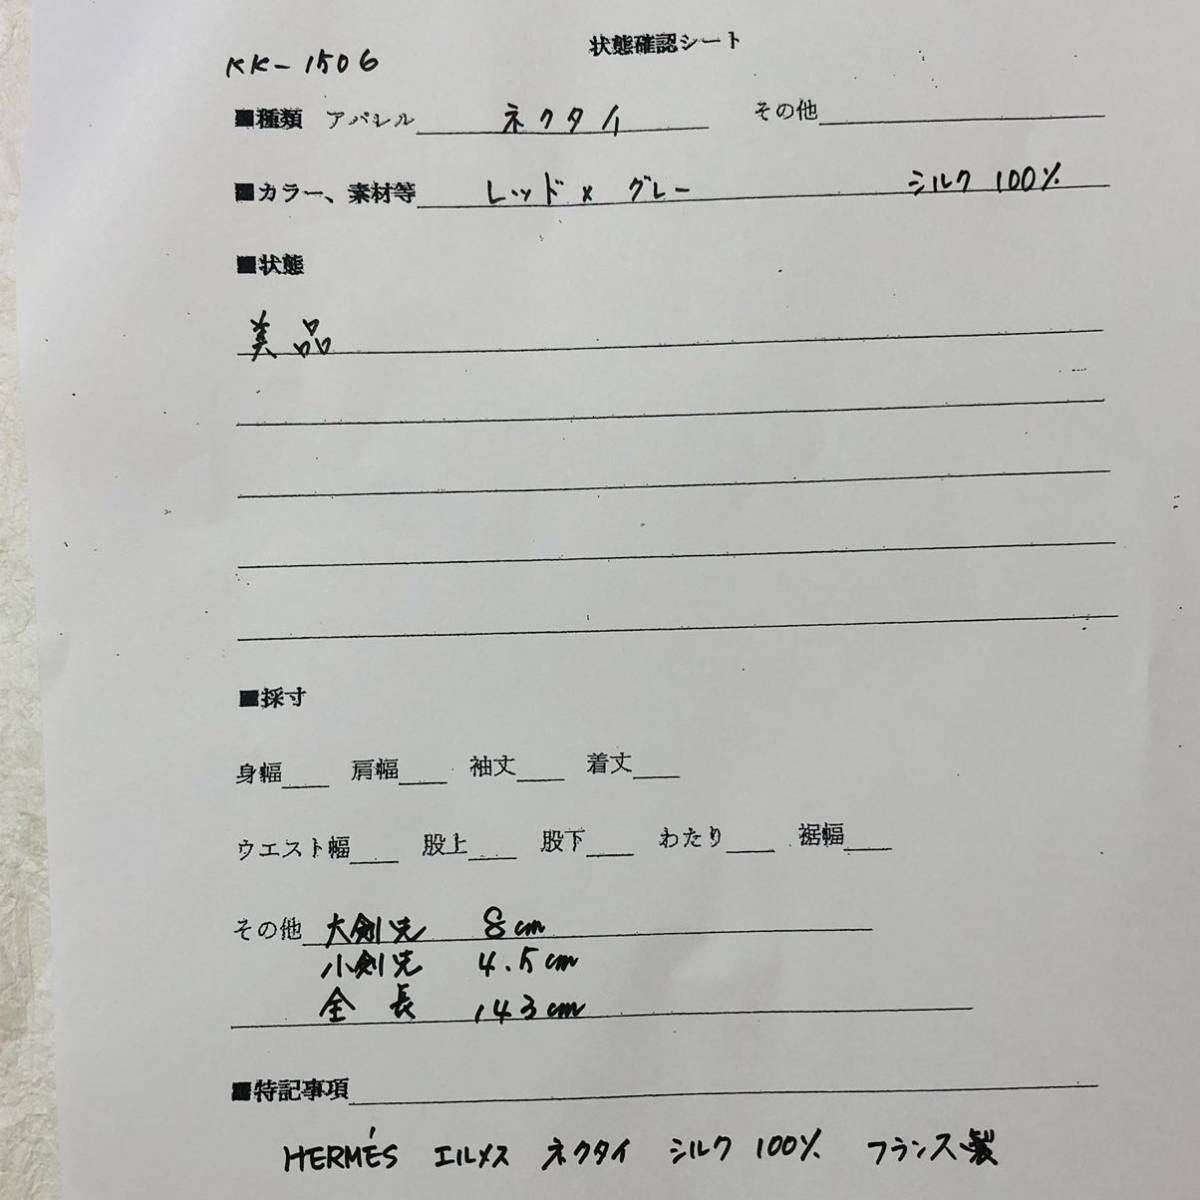 状態確認シート
KK-1506
■種類 アパレル ネクタイ その他
■カラー、素材等 レッド×グレー シルク 100%
■状態
美品
■採寸
身幅 肩幅 袖丈 着丈
ウエスト幅 股上 股下 わたり 裾幅
その他 大剣先 8cm
小剣先 4.5cm
全長 143cm
■特記事項
HERMÉS エルメス ネクタイ シルク 100% フランス製